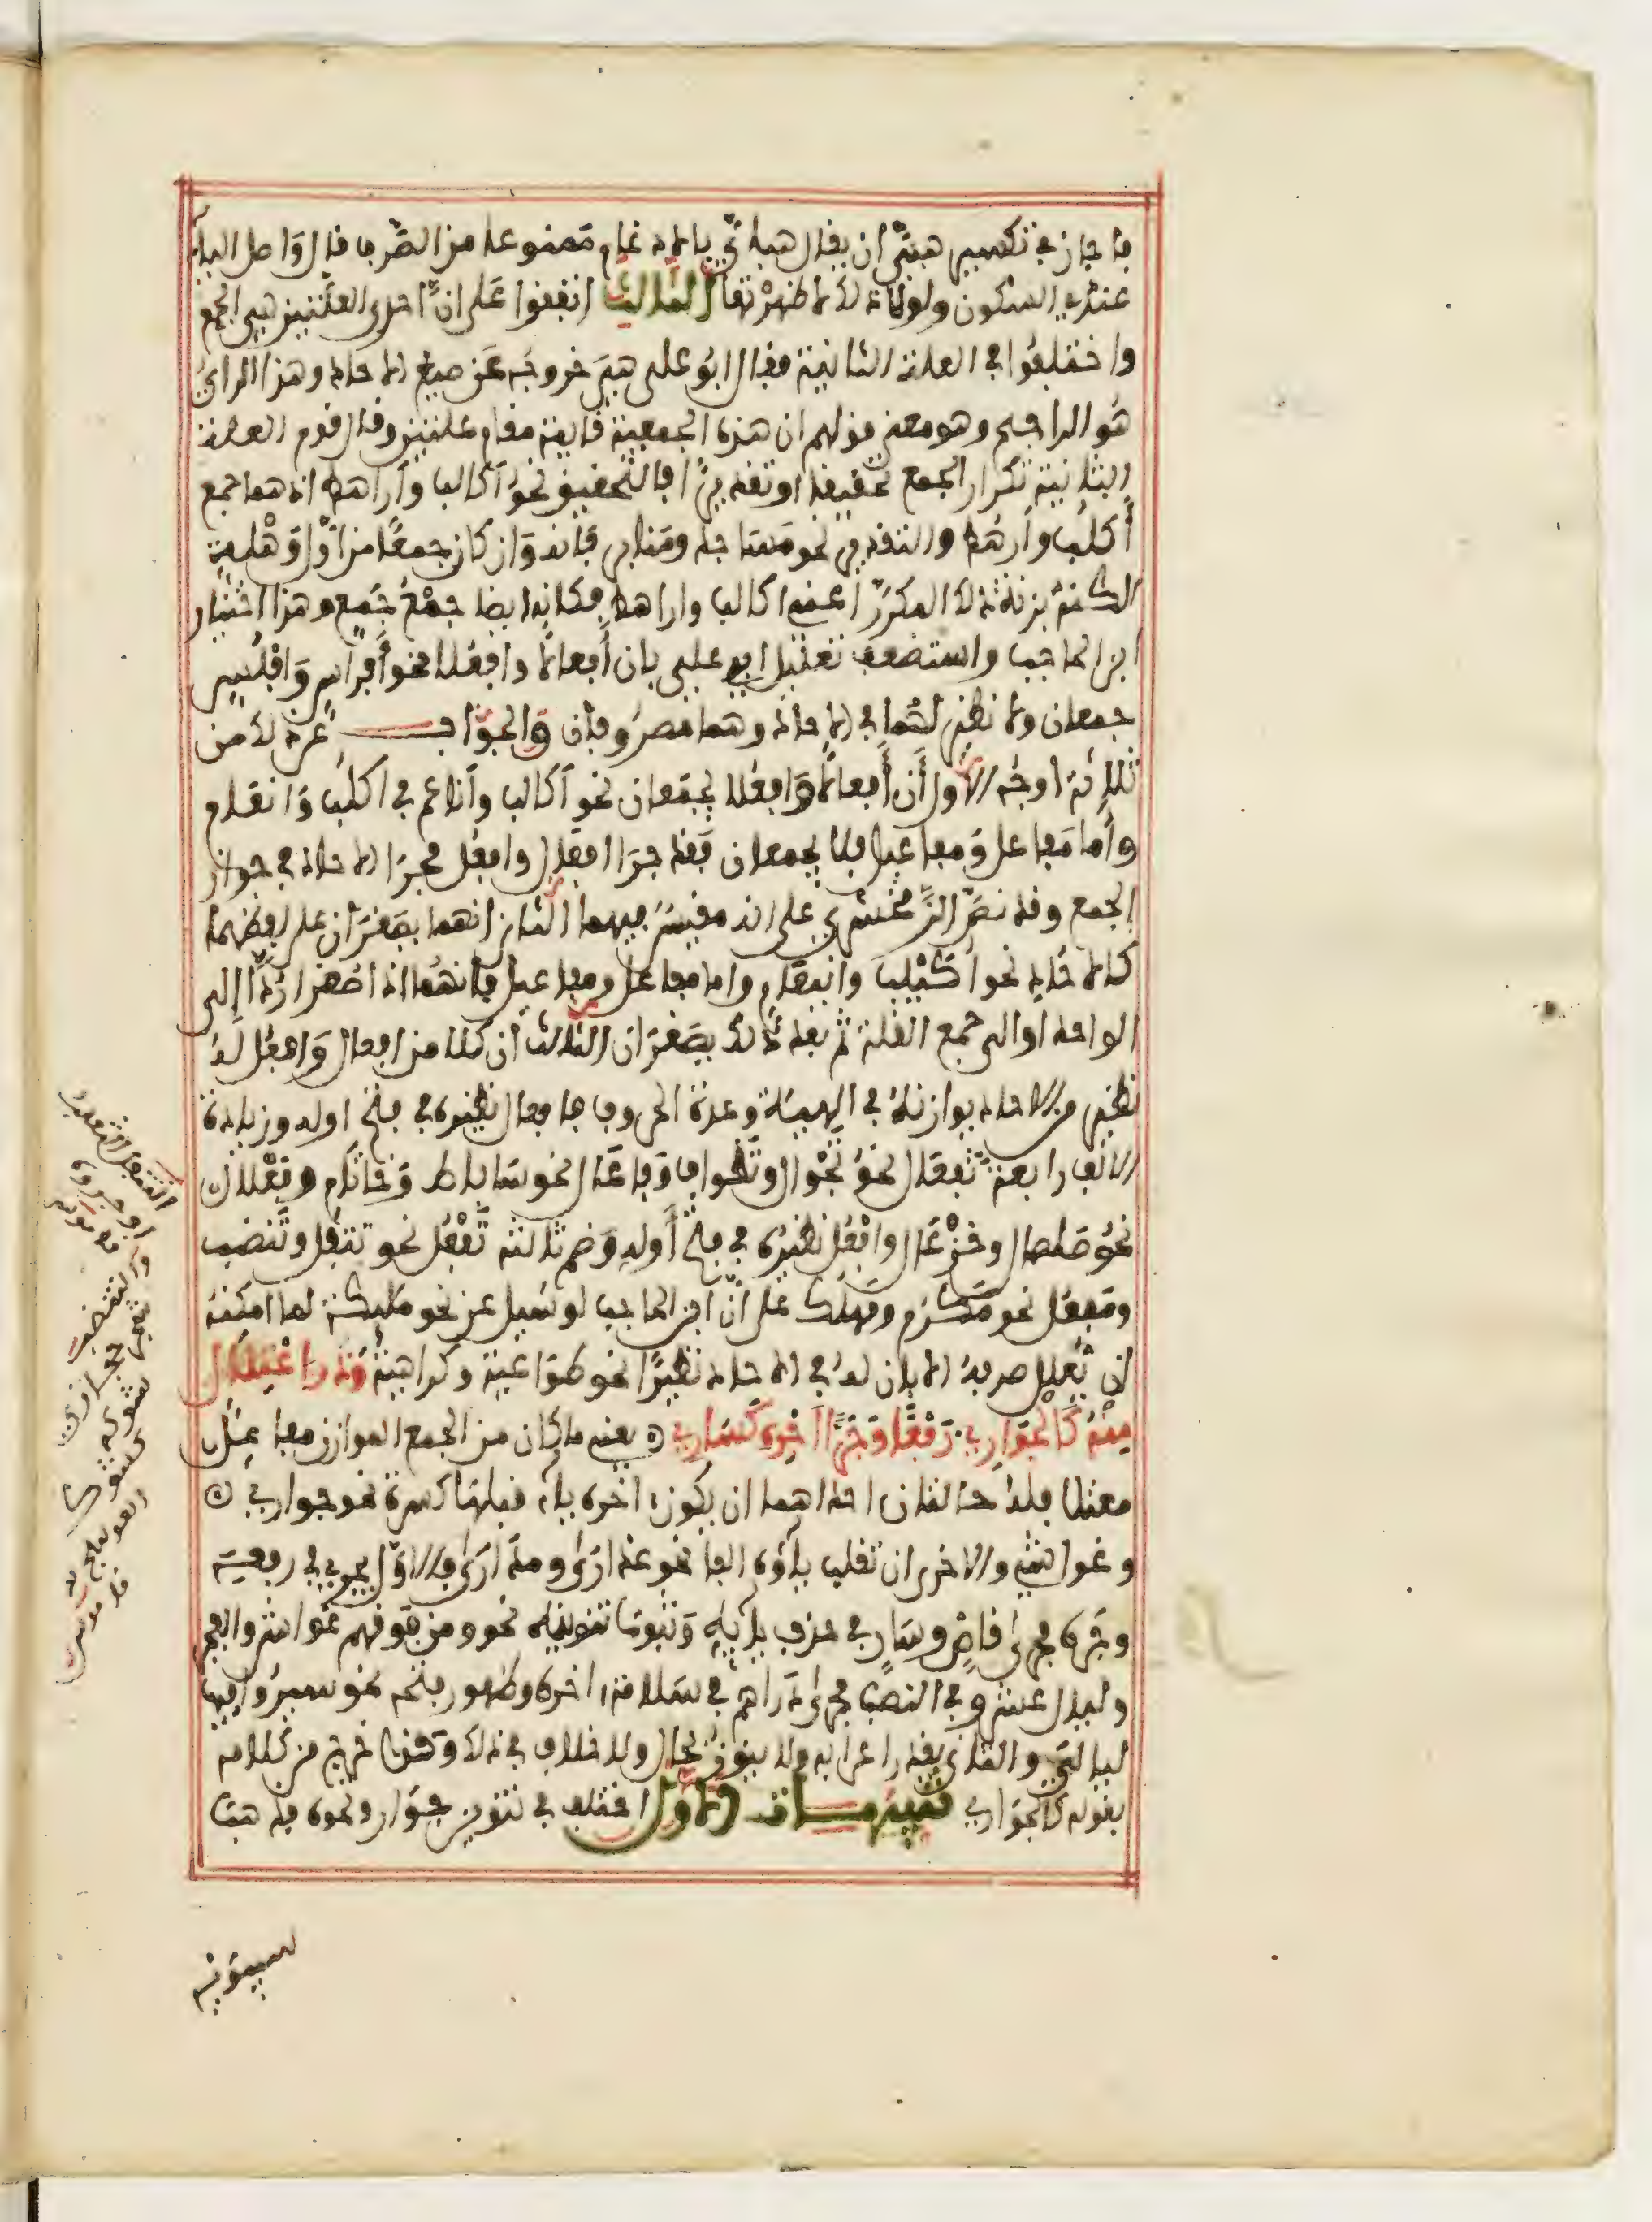 فأجاز في تكسير هبيّ أن يقال هبايّ بالإدغام ممنوعا من الصرف قال وأصل الياء
عندي السكون ولولا ذلك لأظهرتها الثالث اتفقوا على أنّ احدى العلتين هي الجمع
واختلفوا في العلة الثانية فقال ابو علي هي خروجه عن صيغ الاحاد وهذا الرأي
هو الراجح وهو معنى قولهم ان هذه الجمعية قايمة مقام علتين وقال قوم العلة
الثانية تكرار الجمع تحقيقا او تقديرًا فالتحقيق نحو أكالب وأراهط اذ هما جمع
أكلب وأرهط والتقدير نحو مساجد ومنابر فإنه وان كان جمعًا من أوّل وهلة
لكنه بزنة ذلك المكرّر أعني أكالب واراهط فكأنه ايضا جمْعُ جَمْعٍ وهذا اختيار
ابن الحاجب واستضعف تعليل ابي علي بان أفعالًا وافعُلا نحو أفراسٍ وأفلُسٍ
جمعان ولا نظير لهما في الاحاد وهما مصروفان والجواب عن ذلك من
ثلاثة أوجه الأول أن أفعالًا وأفعُلا يجمعان نحو أكالب وأناعم في أكلب وأنعام
وأما مفاعل ومفاعيل فلا يجمعان فقد جرا أفعال وافعل مجرا الاحاد في جواز
الجمع وقد نصّ الزمخشري على انه مقيس فيهما الثاني انهما يصغران على لفظهما
كالاحاد نحو أكيلب وأنيعام واما مفاعل ومفاعيل فانهما اذا صغرا ردّا الى
الواحد او الى جمع القلة ثم بعد ذلك يصغران الثالث أن كلا من افعال وافعل له
نظير من الاحاد يوازنه في الهيئة وعدة الحروف فأفعال نظيره في فتح اوله وزيادة
الألف رابعة تفعال نحو تجوال وتطواف وفاعال نحو ساباط وخاتام وفعلال
نحو صلصال وخزعال وافعُل نظيره في فتح أوله وضم ثالثه تَفْعُل نحو تتفل وتنضب
ومفعُل نحو مكرم ومهلك على أنّ ابن الحاجب لو سيل عن نحو ملايكة لما امكنه
ان يعلل صرفه الا بان له في الاحاد نظيرًا نحو طواعية وكراهية وذا اعتلال
منه كالجواري رفعًا وجرًّا أجره كساري ۝ يعني ما كان من الجمع الموازن مفاعل
معتلا فله حالتان احداهما ان يكون اخره ياء قبلها كسرة نحو جواري ۝
وغواشي والاخرى ان تقلب ياؤه ألفا نحو عذارى ومدارى فالاول يجرى في رفعه
وجره مجرى قاضٍ وسارٍ في حذف يائه وثبوت تنوينه نحو ومن فوقهم غواش والفجر
وليال عشر وفي النصب مجرى دراهم في سلامة اخره وظهور فتحه نحو سيروا فيها
ليالي والثاني يقدر اعرابه ولا ينون بحال ولا خلاف في ذلك وهذا خرج من كلامه
بقوله كالجواري تنبيهات الأول اختلف في تنوين جوار ونحوه فذهب
سيبويه
التتفل الثعلب
او جروه
قاموس
والتنضب
شجر حجازي
شوكه
كشوك
العوسج
قاموس